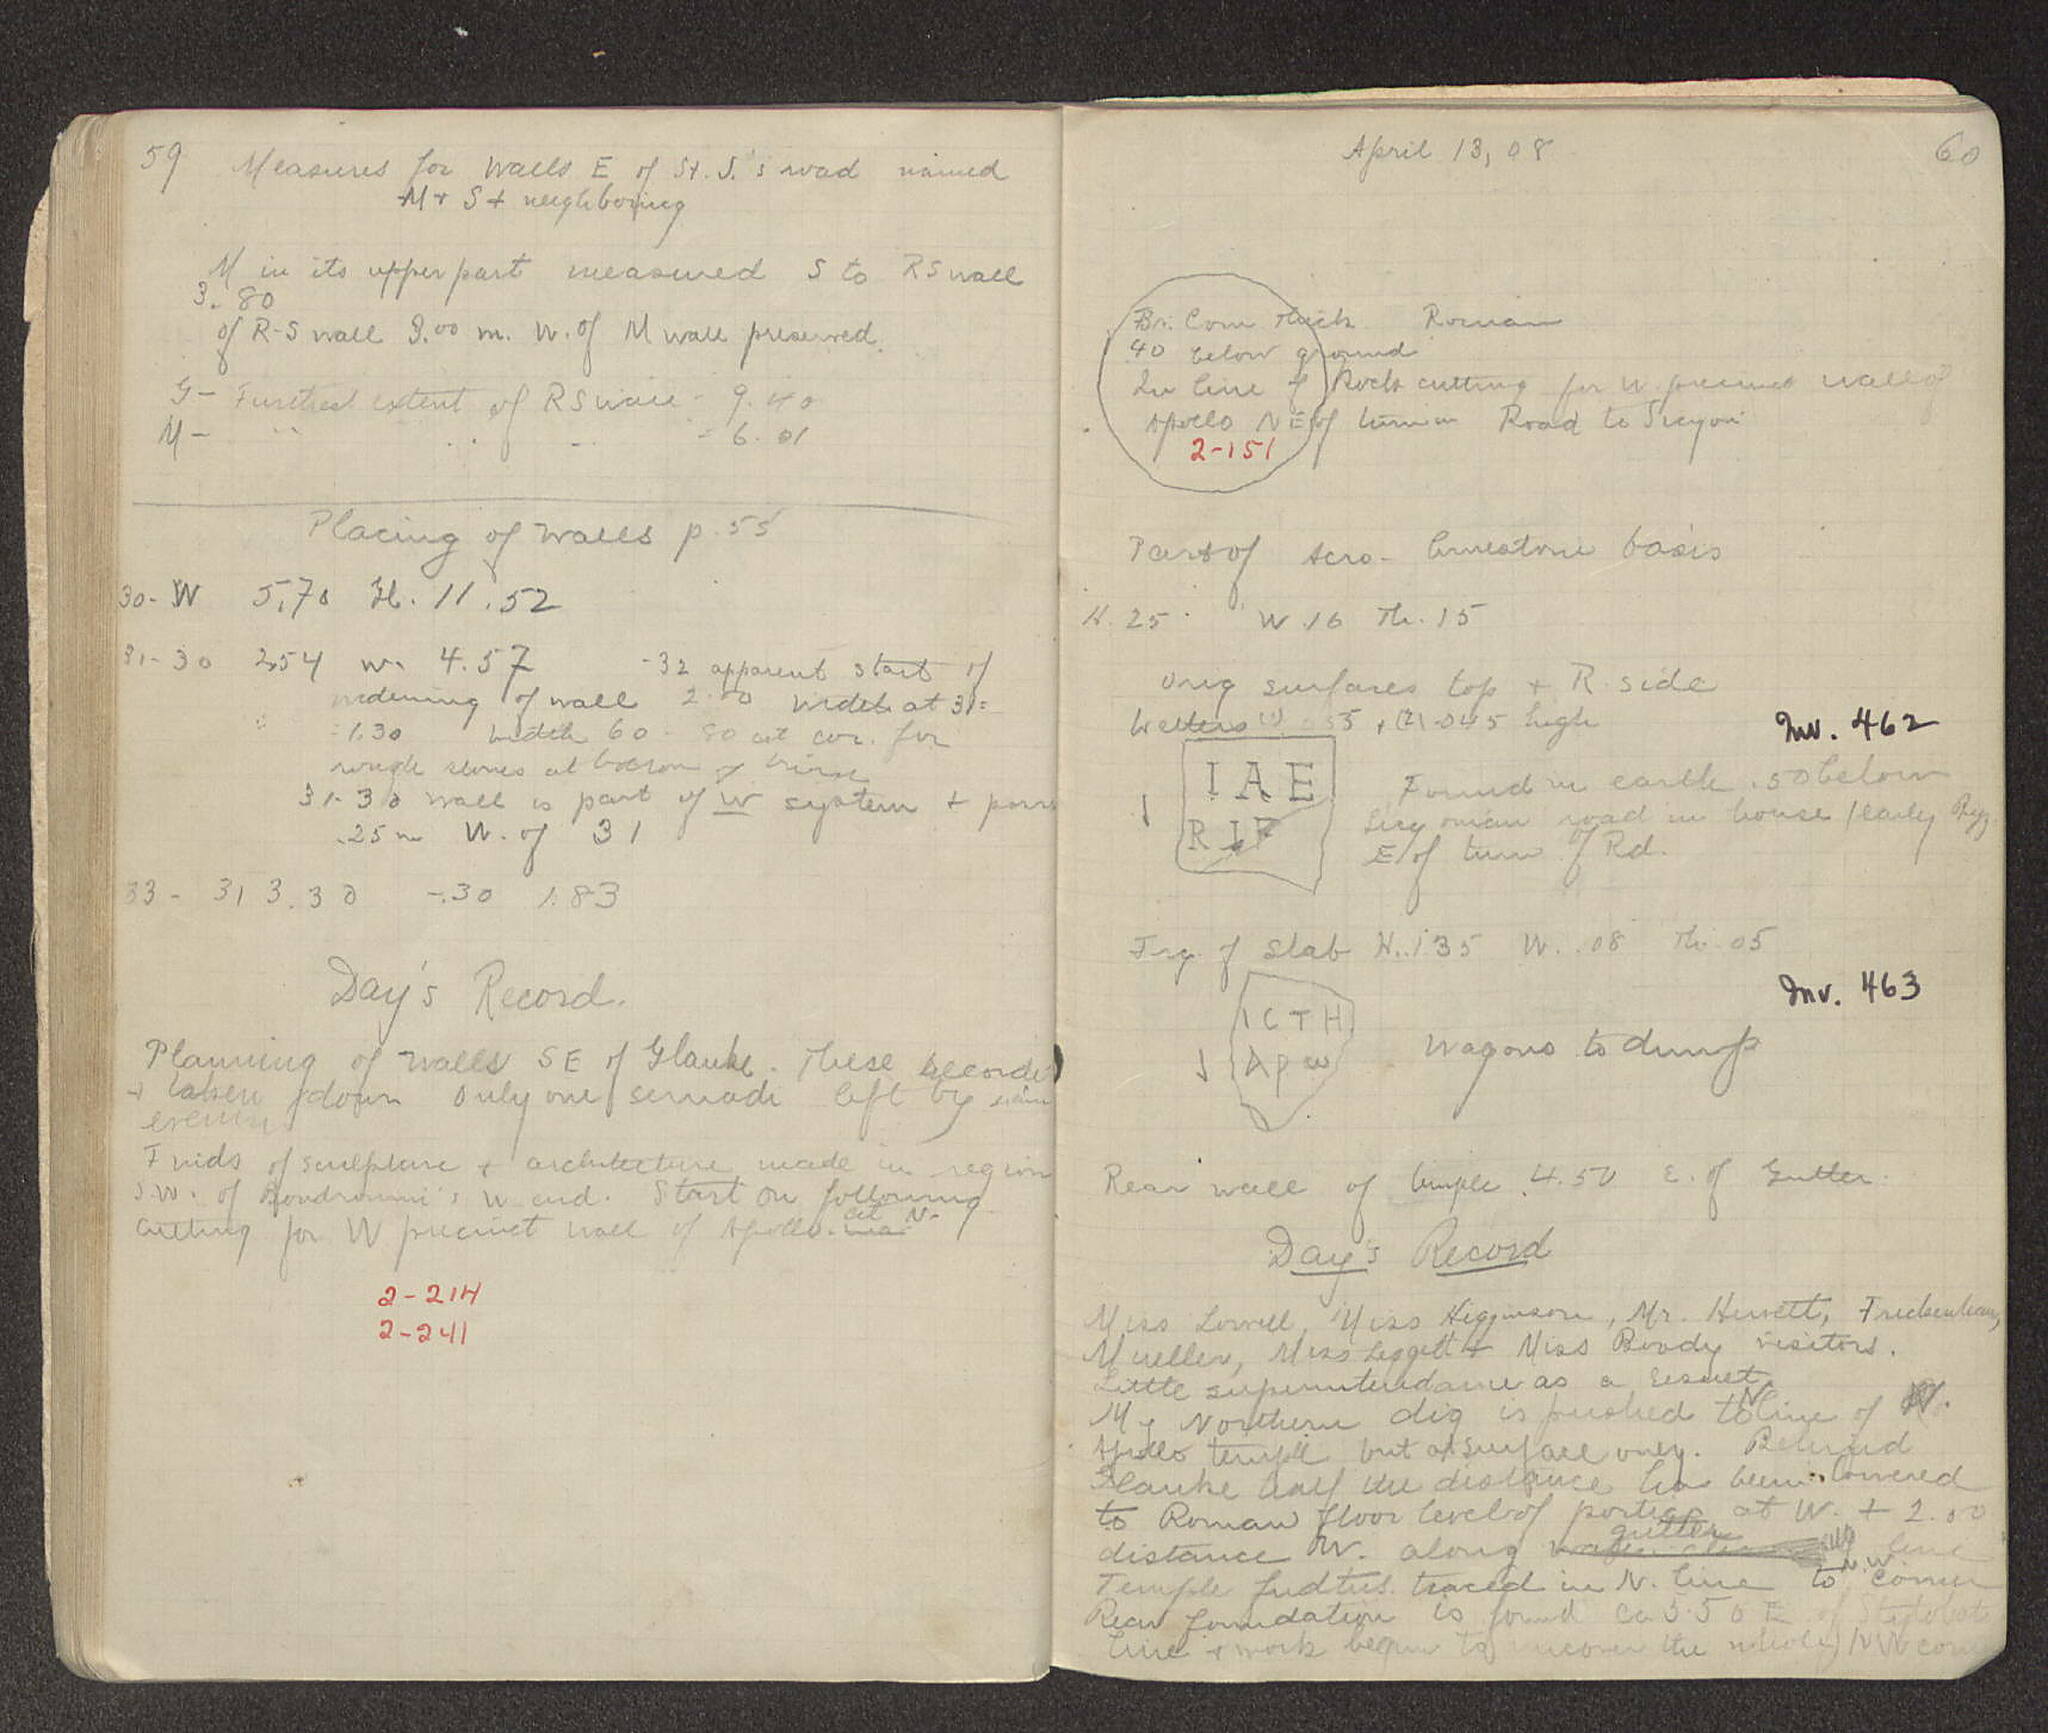 59
Measures for Walls E of St. S.'s road named
M + S + neighboring
M in its upper part measured S to RS wall
3.80
of R-S wall 3.00 m. W. of M wall preserved.
G- Furthest extent of RS wall - 9.40
M- " " " - 6.01
Placing of Walls p. 55
30-W 5.70 Gl. 11.52
31-30 2.54 w- 4.57 -32 apparent start of
widening of wall 2.50 width at 31=
=1.30 width 60-80 at cor. for
rough stones at bottom of
31-30 wall is part of W system +
.25 m W. of 31
33- 31 3.30 -.30 1.83
Day's Record.
Planning of walls SE of Glauke. These
+ taken down only one left by
evening
Finds of sculpture + architecture made in region
S.W. of W end. Start on following
cutting for W precinct wall of Apollo. at N-
2-214
2-241
April 13, 08
60
Br. Coin thick Roman
40 below ground
In line of Rock cutting for W. precinct wall of
Apollo NE of turn in Road to Sicyon
2-151
Part of Acro- limestone basis
H. 25 W .16 Th. .15
Orig surfaces top + R. side
Letters (1) .055 + (2) .045 high
Inv. 462
IAE
RIF
Found in earth .50 below
Sicyonian road in house / early Byz
E of turn of Rd.
Frg. of Slab H. .135 W. .08 Th .05
Inv. 463
ICTH
Apω
Wagons to dump
Rear wall of temple 4.50 E. of Gutter.
Day's Record
Miss Lowell, Miss Higginson, Mr. Hewett, Frickenhaus,
Mueller, Miss Leggett + Miss Boody visitors.
Little superintendance as a result
My Northern dig is pushed to N line of
Apollo temple but at surface only. Behind
Glauke half the distance has been lowered
to Roman floor level of portico at W. + 2.00
distance W. along gutter line
Temple fndtns. traced in N. line to N.W. corner
Rear foundation is found ca 5.50 E of Stylobate
line + work begun to uncover the whole NW